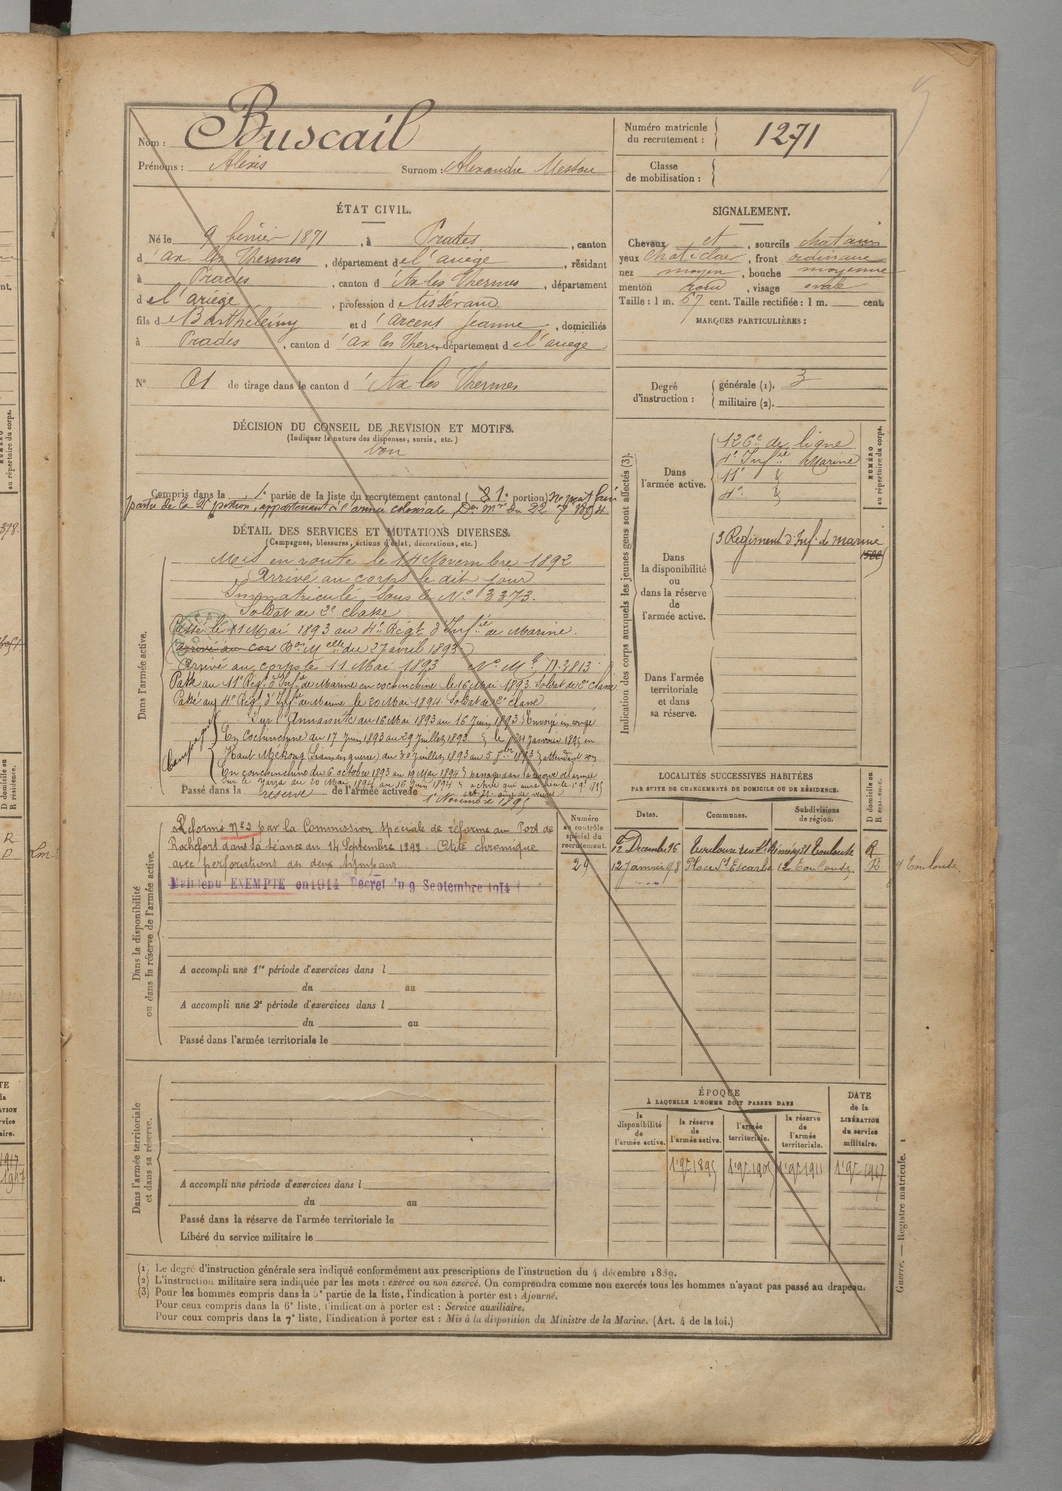 Nom : Buscail
Prénoms : Alexis Surnom : Alexandre Messou
Numéro matricule du recrutement : 1271
Classe de mobilisation :
ÉTAT CIVIL.
Né le 9 février 1871, à Prades, canton
d'ax les Thermes, département de l'ariège, résidant
à Prades, canton d'Ax les Thermes, département
de l'ariège, profession de tisserand
fils de Barthélémy et d'arcens Jeanne, domiciliés
à Prades, canton d'ax les Thermes, département de l'ariège
N° 61 de tirage dans le canton d'Ax les Thermes
SIGNALEMENT.
Cheveux et, sourcils chatains
yeux chat. clair, front ordinaire
nez moyen, bouche moyenne
menton rond, visage ovale
Taille : 1 m. 57 cent. Taille rectifiée : 1 m. cent.
MARQUES PARTICULIÈRES :
Degré d'instruction : générale (1). 3
militaire (2).
DÉCISION DU CONSEIL DE REVISION ET MOTIFS.
(Indiquer la nature des dispenses, sursis, etc.)
bon
Compris dans la 1e partie de la liste du recrutement cantonal ( 1e portion) ne peut faire
partie de la 2e portion, appartenant à l'armée coloniale
DÉTAIL DES SERVICES ET MUTATIONS DIVERSES.
(Campagnes, blessures, actions d'éclat, décorations, etc.)
Dans l'armée active.
Mis en route le 14 Novembre 1892
Arrivé au corps le dit jour
Immatriculé sous le No 3373.
Soldat de 2e classe
Passé le 11 Mai 1893 au 4e Régt d'Inf.ie de Marine.
arrivé au cor Don Melle du 27 avril 1893
Arrivé au corps le 11 Mai 1893 No Mle 3813
Passé au 11e Régt d'Inf.ie de Marine en cochinchine le 16 Mai 1893. Soldat de 2e classe
Passé au 4e Régt d'Inf.ie de Marine le 20 Mai 1894 Soldat de 2e classe
Sur l'Annamite du 16 Mai 1893 au 16 Juin 1893 Envoyé en congé
En Cochinchine du 17 Juin 1893 au 29 Juillet 1893 le 24 Janvier 1895 en
Haut Mékong du 30 Juillet 1893 au 5 8bre 1893 attendant son
En cochinchine du 6 octobre 1893 au 19 Mai 1894 passage dans la réserve de l'armée
du 20 Mai 1894 au 16 Juin 1894 active
Passé dans la réserve de l'armée active le 1 Novembre 1895
Indication des corps auxquels les jeunes gens sont affectés (3).
NUMÉRO au répertoire du corps.
Dans l'armée active.
126e de ligne
4e Inf.ie Marine
11e d
4e d
Dans la disponibilité ou dans la réserve de l'armée active.
3 Régiment d'Inf. de marine
Dans l'armée territoriale et dans sa réserve.
Dans la disponibilité ou dans la réserve de l'armée active.
Réformé No 2 par la Commission spéciale de réforme du Port de
Rochefort dans la séance du 14 Septembre 1898. Otite chronique
avec perforations des deux tympans
Maintenu EXEMPTE en 1914 Décret du 9 Septembre 1914
Numéro au contrôle spécial du recrutement.
29
A accompli une 1re période d'exercices dans l
du au
A accompli une 2e période d'exercices dans l
du au
Passé dans l'armée territoriale le
LOCALITÉS SUCCESSIVES HABITÉES
PAR SUITE DE CHANGEMENTS DE DOMICILE OU DE RÉSIDENCE.
Dates. Communes. Subdivisions de région. D domicile ou R résidence.
12 Décembre 96 Toulouse Toulouse R
12 Janvier 98 Place St Escarbe 12 Toulouse R Toulouse
Dans l'armée territoriale et dans sa réserve.
A accompli une période d'exercices dans l
du au
Passé dans la réserve de l'armée territoriale le
Libéré du service militaire le
ÉPOQUE
À LAQUELLE L'HOMME DOIT PASSER DANS
la disponibilité de l'armée active. la réserve de l'armée active. l'armée territoriale. la réserve de l'armée territoriale.
DATE de la LIBÉRATION du service militaire.
1er 9bre 1895 1er 9bre 1905 1er 9bre 1911 1er 9bre 1917
(1) Le degré d'instruction générale sera indiqué conformément aux prescriptions de l'instruction du 4 décembre 1889.
(2) L'instruction militaire sera indiquée par les mots : exercé ou non exercé. On comprendra comme non exercés tous les hommes n'ayant pas passé au drapeau.
(3) Pour les hommes compris dans la 5e partie de la liste, l'indication à porter est : Ajourné.
Pour ceux compris dans la 6e liste, l'indication à porter est : Service auxiliaire.
Pour ceux compris dans la 7e liste, l'indication à porter est : Mis à la disposition du Ministre de la Marine. (Art. 4 de la loi.)
Guerre. — Registre matricule. 1